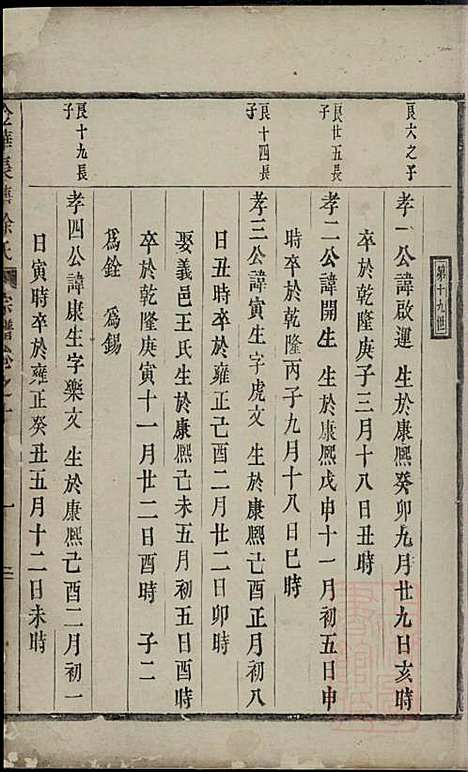 第十九世
良六之子
孝一公諱啟運 生於康熙癸卯九月廿九日亥時
卒於乾隆庚子三月十八日丑時
良廿五長子
孝二公諱開生 生於康熙戊申十一月初五日申
時卒於乾隆丙子九月十八日巳時
良十四長子
孝三公諱寅生字虎文 生於康熙己酉正月初八
日丑時卒於雍正己酉二月廿二日卯時
娶義邑王氏生於康熙己未五月初五日酉時
卒於乾隆庚寅十一月廿二日酉時 子二
為銓 為錫
良十九長子
孝四公諱康生字樂文 生於康熙己酉二月初一
日寅時卒於雍正癸丑五月十二日未時
徐氏 宗譜卷之十